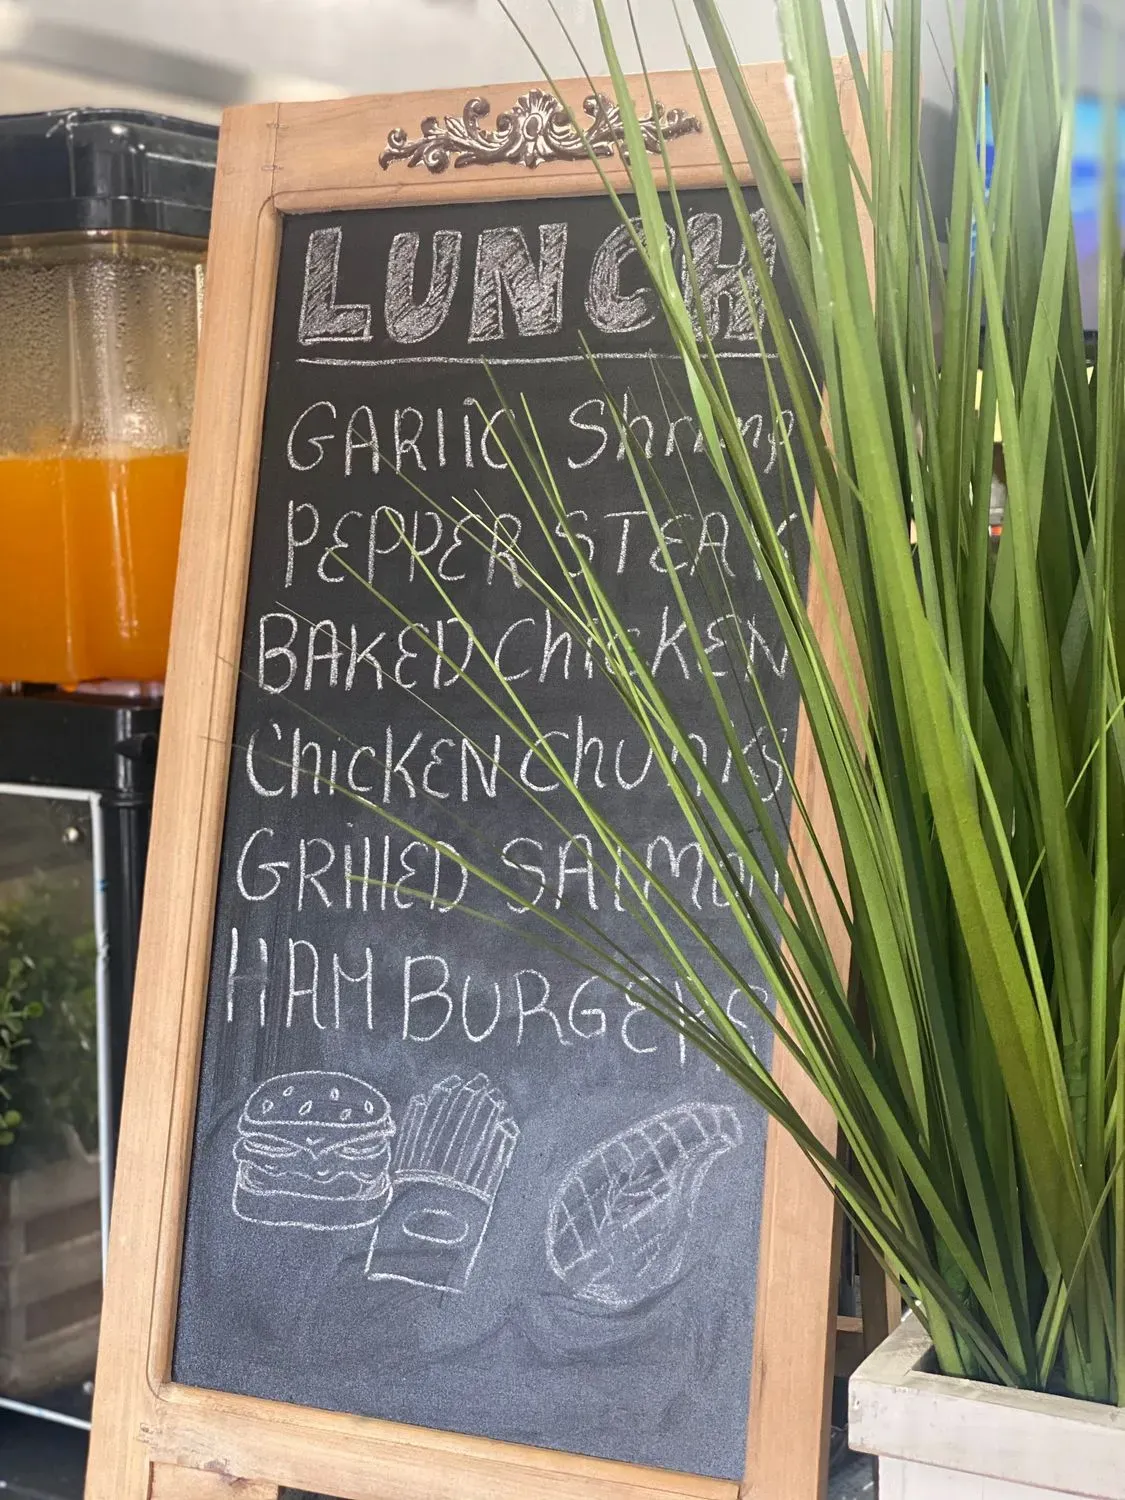 LUNCH
GARlIC Shrimp
PEPPER STEAK
BAKED ChicKEN
ChicKEN ChUnKS
GRillED SAlMon
HAMBURGERS